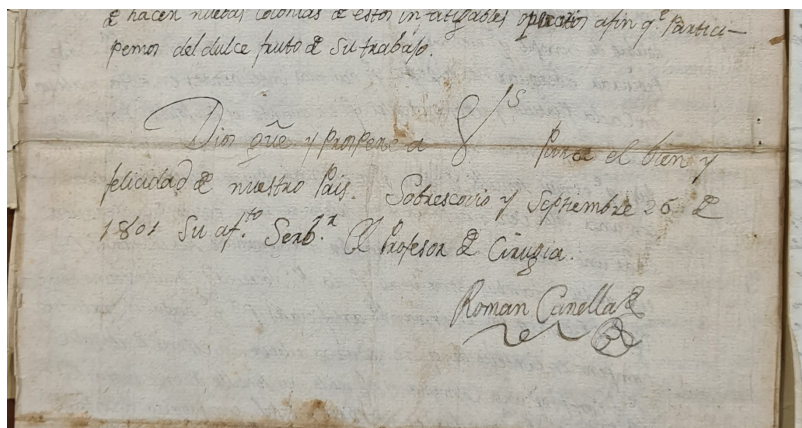 d hacen nuevas colonias de estos infatigables operarios afin q.e Partici-
pemos del dulce fruto d su trabajo.
Dios gũe y prospere a V.s para el bien y
felicidad d nuestro Pais. Sobrescovio y Septiembre 26 d
1801 Su af.to Serb.r El Profesor d Cirugia.
Roman Canella